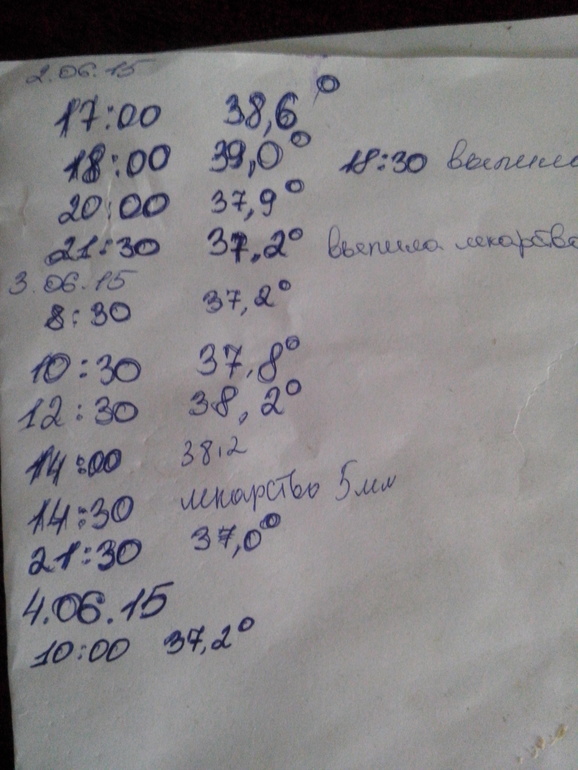 2.06.15
17:00 38,6°
18:00 39,0° 18:30 выпила
20:00 37,9°
21:30 37,2° выпила лекарство
3.06.15
8:30 37,2°
10:30 37,8°
12:30 38,2°
14:00 38,2
14:30 лекарство 5мл
21:30 37,0°
4.06.15
10:00 37,2°